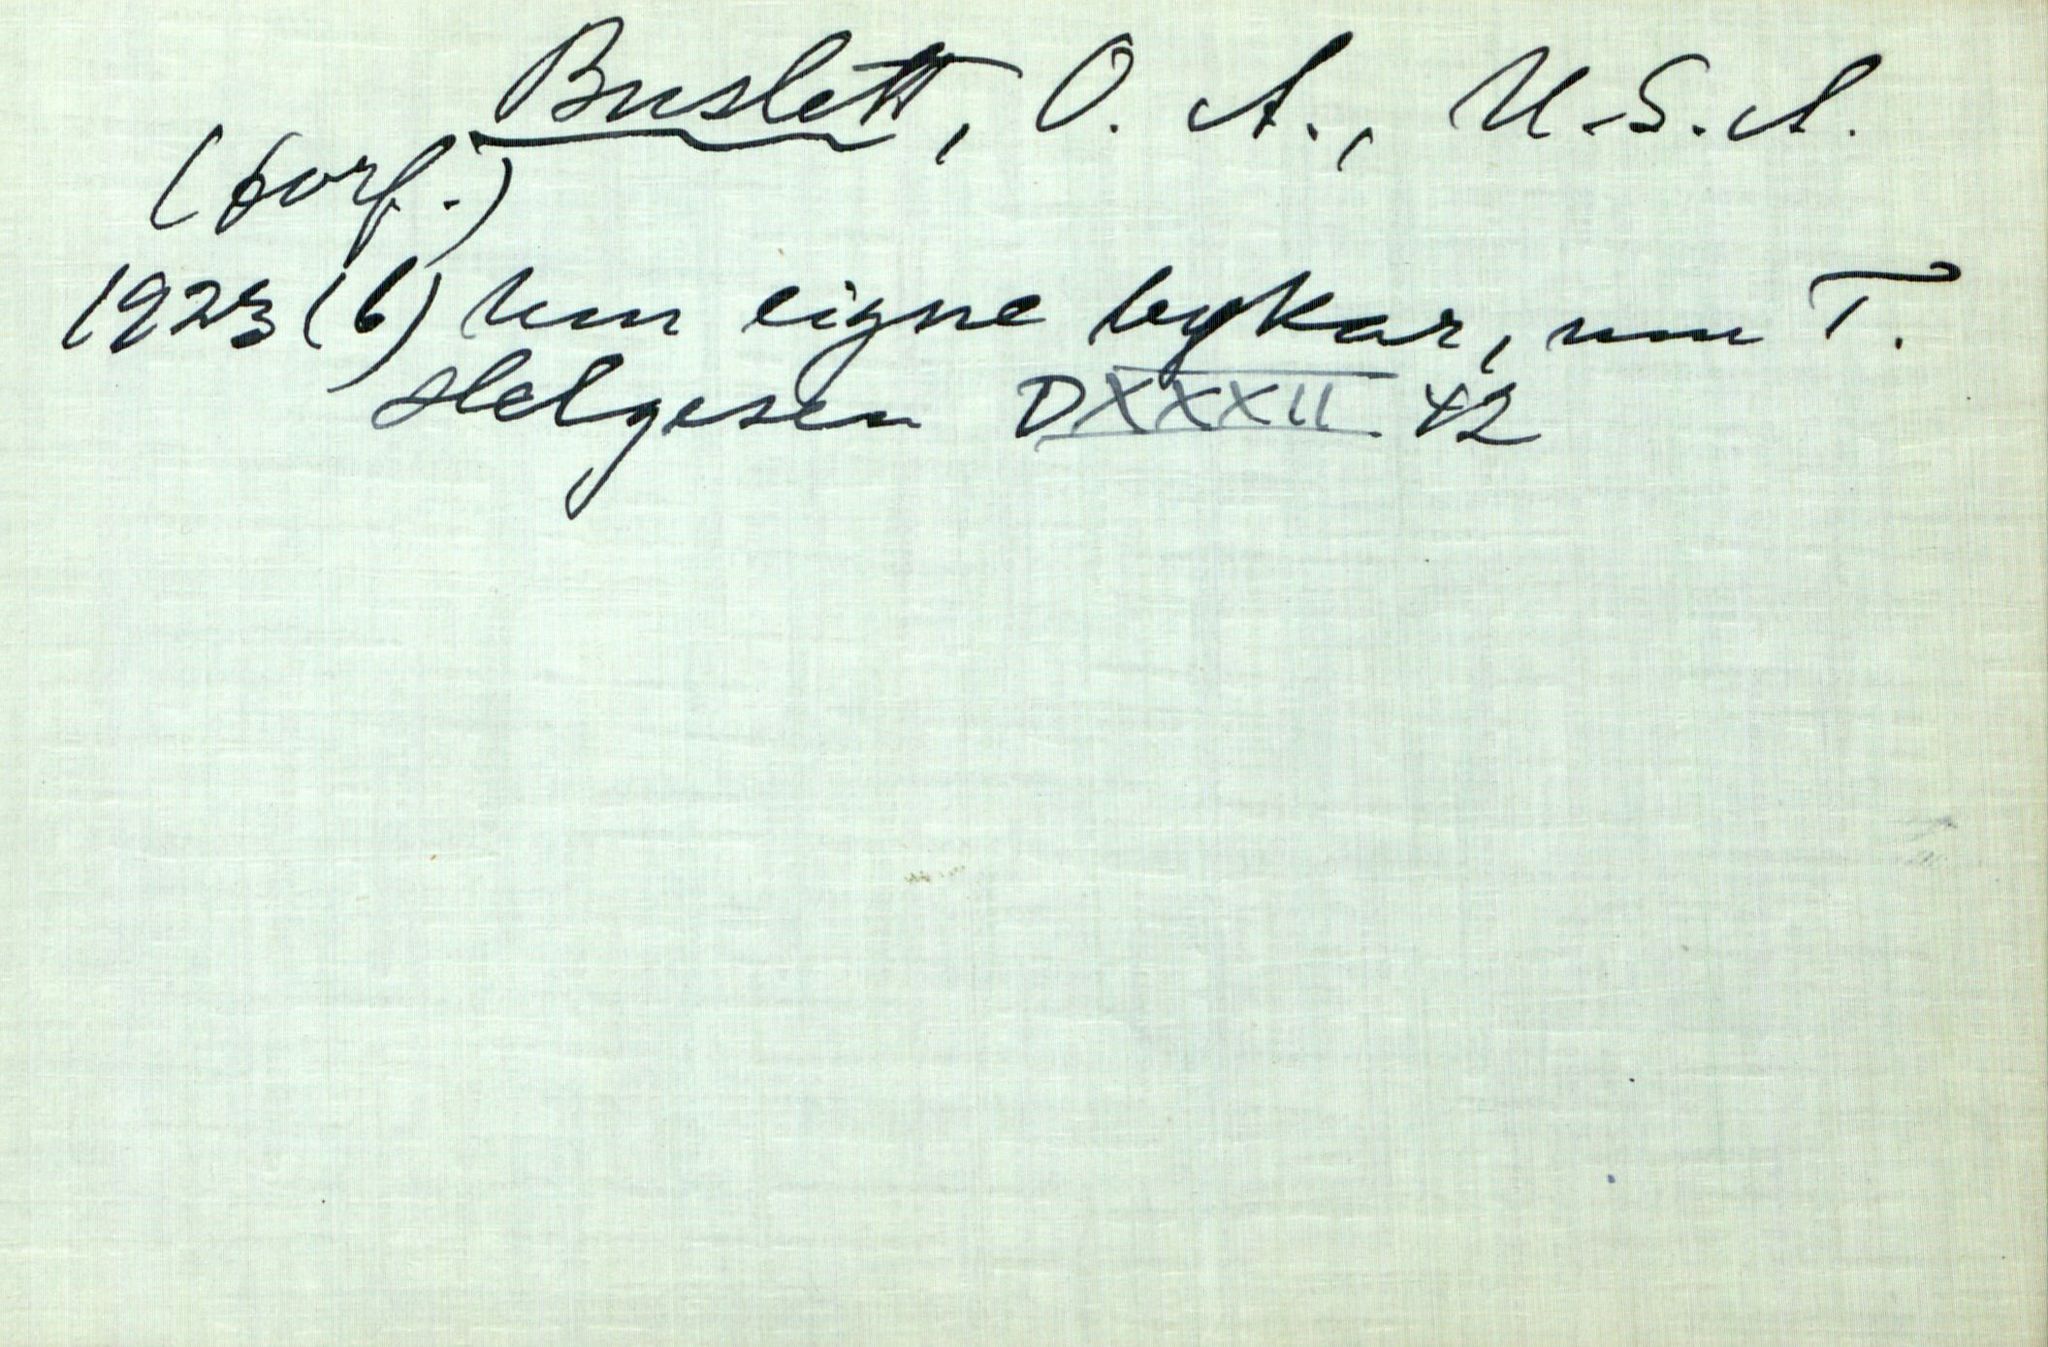 Buslett, O. A., U.S.A.
(forf.)
1923 (6) Um eigne bøkar, um T.
Helgesen DXXXII 42